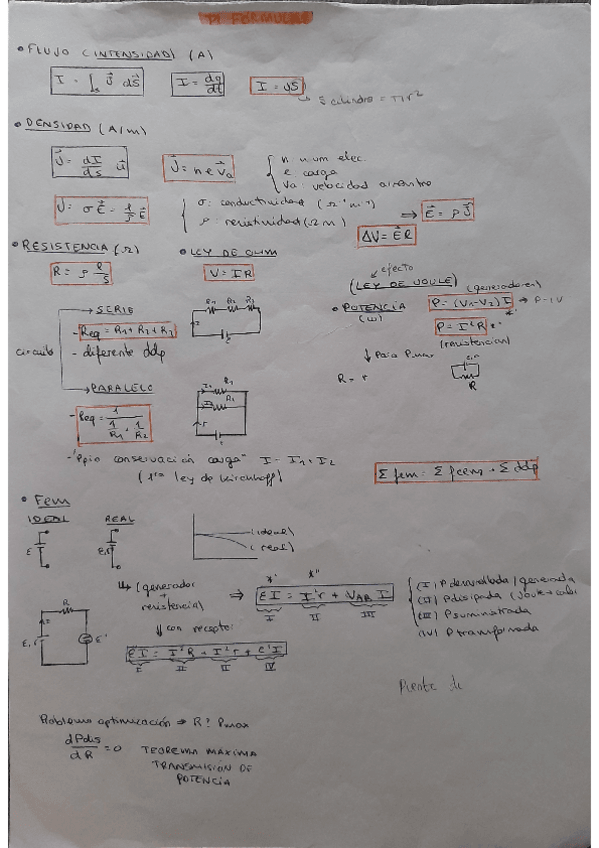 P1 FORMULAS
• FLUJO (INTENSIDAD) (A)
I = ∫s J⃗ dS⃗
I = dq/dt
I = JS
↳ S cilindro = πr²
• DENSIDAD (A/m)
J⃗ = dI/ds u⃗
J⃗ = n e v⃗a
n: num elec.
e: carga
Va: velocidad
J = σE⃗ = 1/ρ E⃗
σ: conductividad (Ω⁻¹m⁻¹)
ρ: resistividad (Ωm)
⇒ E⃗ = ρJ⃗
ΔV = E⃗ℓ
• RESISTENCIA (Ω)
R = ρ ℓ/S
• LEY DE OHM
V = IR
efecto
(LEY DE JOULE) (generadores)
• POTENCIA (W)
P = (V1-V2) I → P = IV
P = I²R
(resistencias)
↓ Para Pmax
R = r
E,r
R
circuito
→ SERIE
- Req = R1 + R2 + R3
- diferente ddp
R1 R2 R3
I
E
→ PARALELO
- Req = 1/(1/R1 + 1/R2)
I1 R1
I2 R2
I
E
- "Ppio conservación carga" I = I1 + I2
(1ª ley de Kirchhoff)
Σ fem = Σ fcem + Σ ddp
• Fem
IDEAL
REAL
E
E,r
(ideal)
(real)
↳ (generador + resistencia)
⇒ EI = I²r + VAB I
I II III
(I) P desarrollada/generada
(II) P disipada (Joule
(III) P suministrada
(IV) P transformada
R
I
E,r
E'
↓ con receptor
EI = I²R + I²r + E'I
I II II IV
Puente de
Problema optimización ⇒ R? Pmax
dPdis/dR = 0
TEOREMA MAXIMA
TRANSMISIÓN DE
POTENCIA